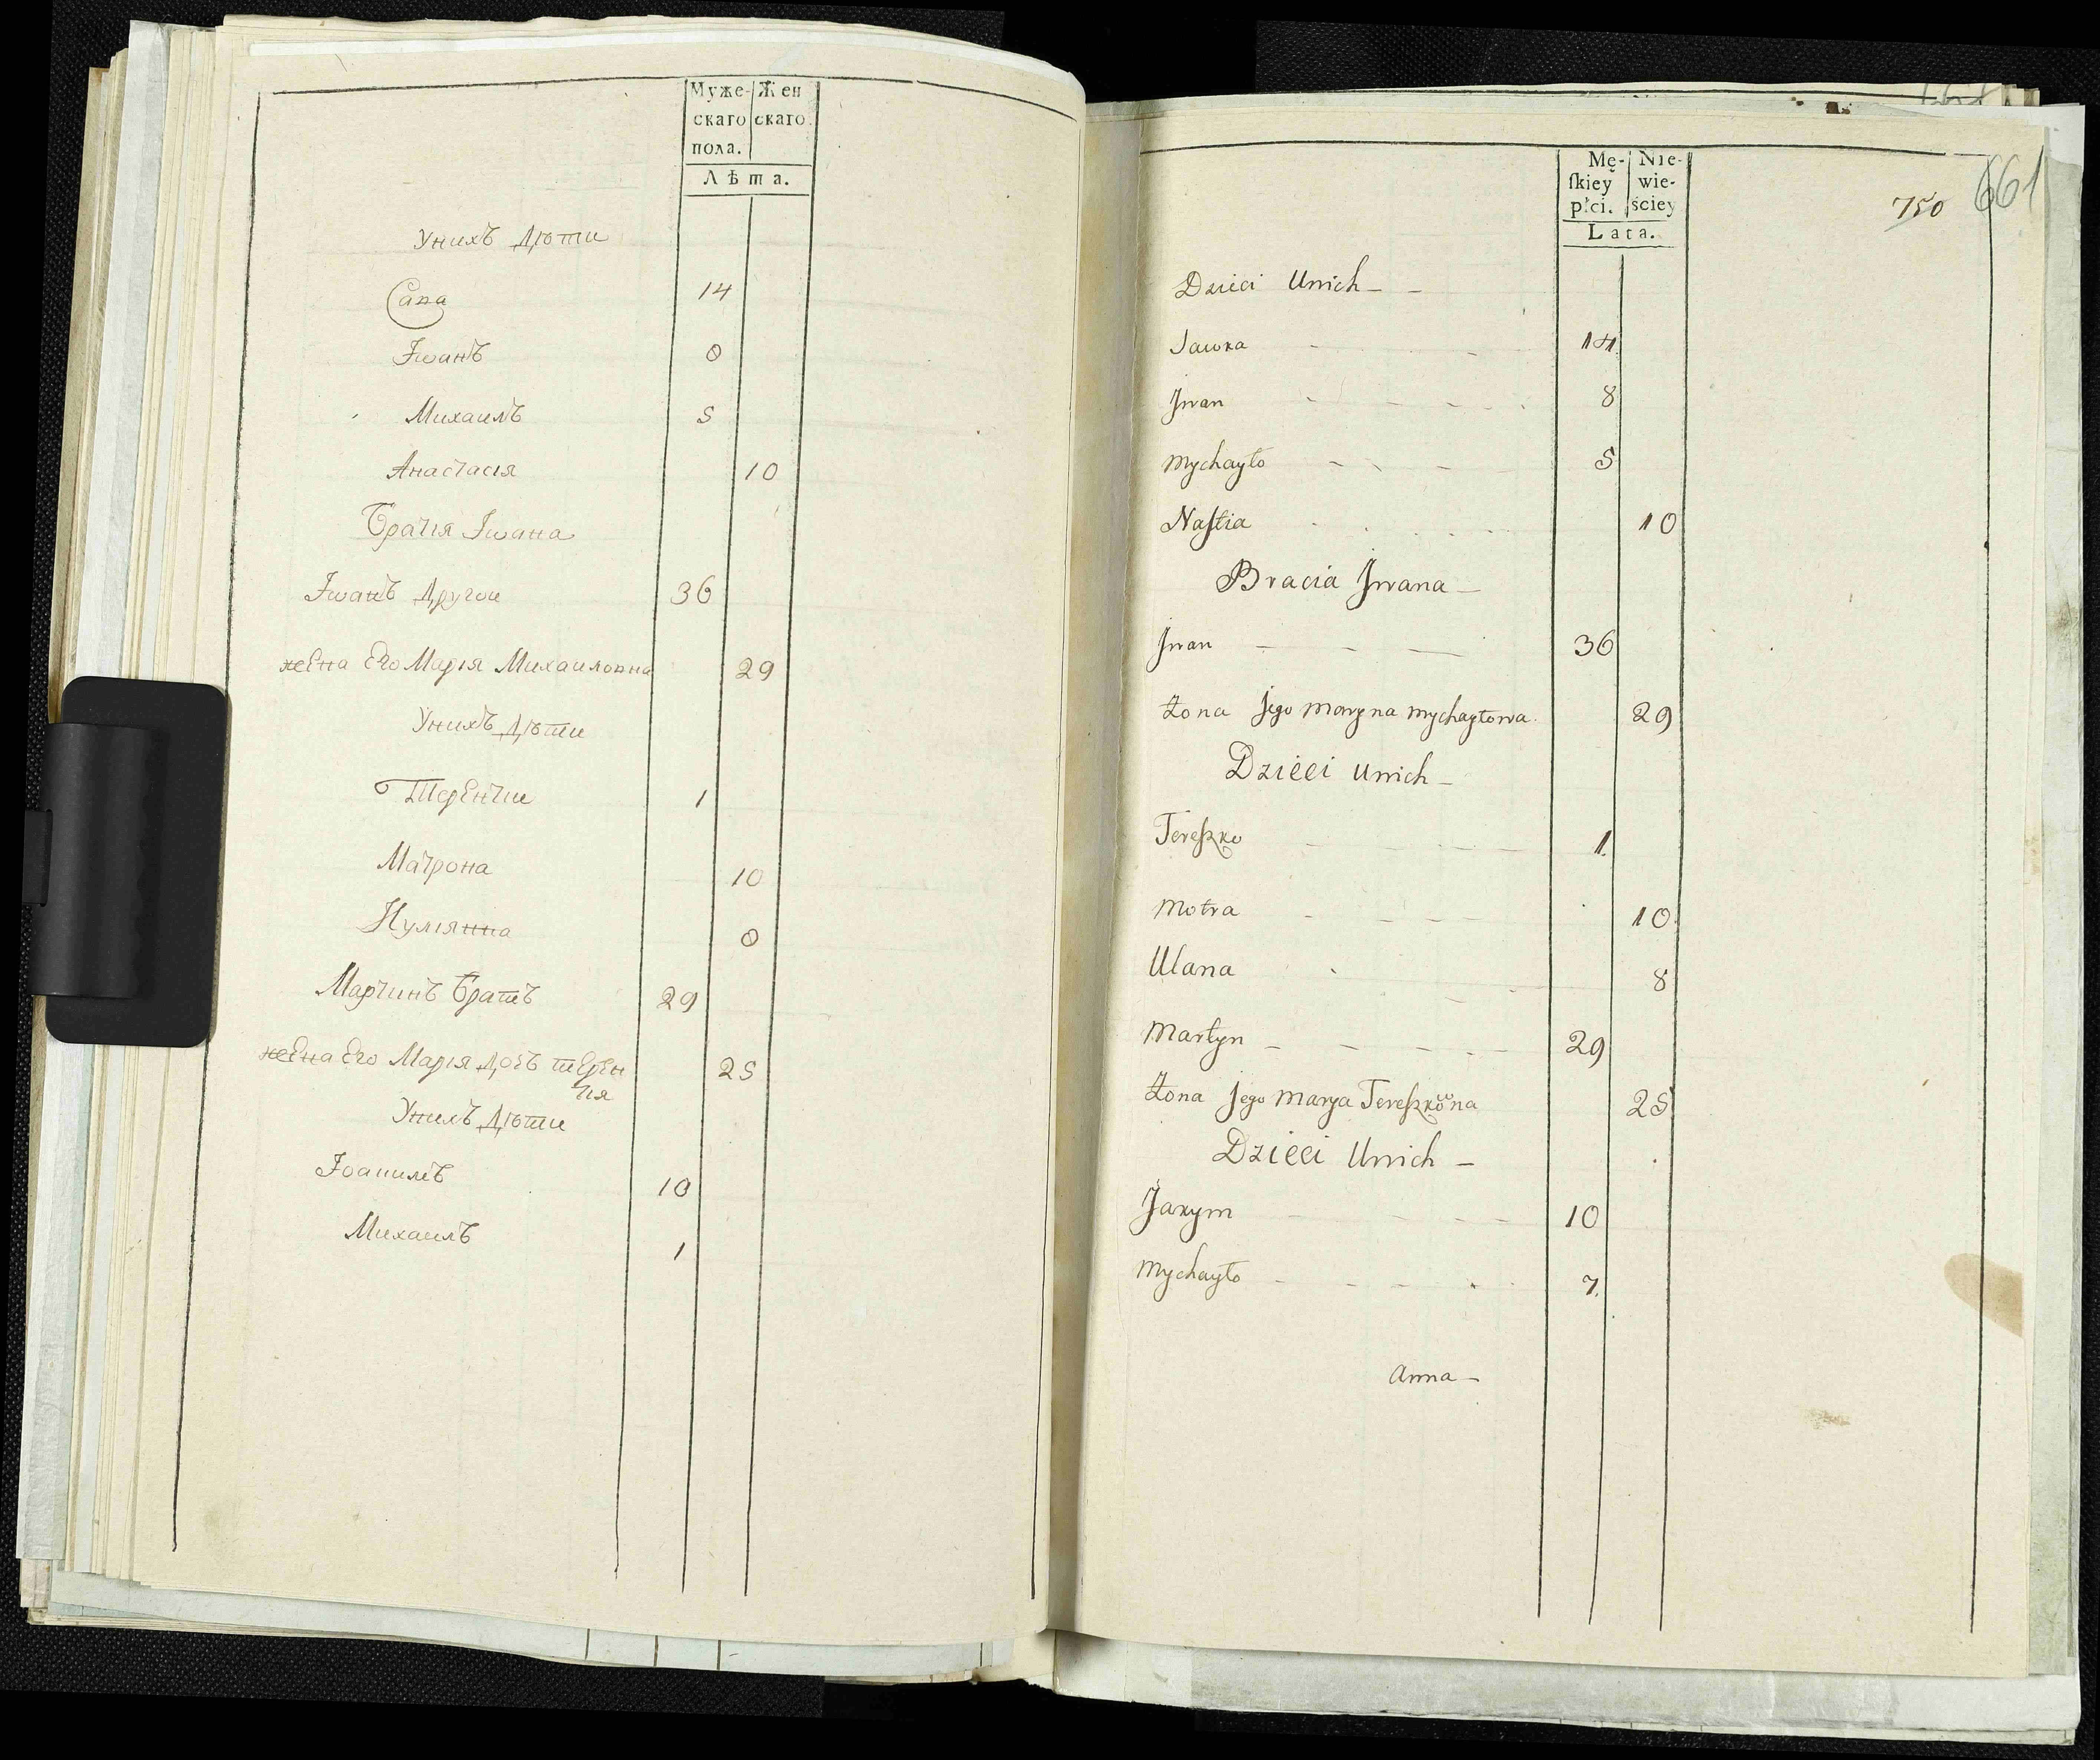 Муже-
скаго
пола.
Жен
скаго.
Лѣта.
Унихъ Дѣти
Сава 14
Іванъ 8
Михаилъ 5
Анастасія 10
Братія Івана
Іванъ Другои 36
жена Его Марія Михаиловна 29
Унихъ Дѣти
Терентии 1
Матрона 10
Иулiянна 8
Мартинъ братъ 29
жена Его Марія Дочь терен
тія 25
Унихъ Дѣти
Іоакимъ 10
Михаилъ 1
Mę-
ſkiey
płci.
Nie-
wie-
ściey
Lata.
750
661
Dzieci Unich
Sawka 14
Jwan 8
Mychayło 5
Naſtia 10
Bracia Jwana
Jwan 36
Żona jego maryna mychayłowa 29
Dzieci unich
Tereſzko 1
Motra 10
Ulana 8
Martyn 29
Żona jego marya Tereſzkowna 25
Dzieci Unich
Jakym 10
Mychayło 7
Anna